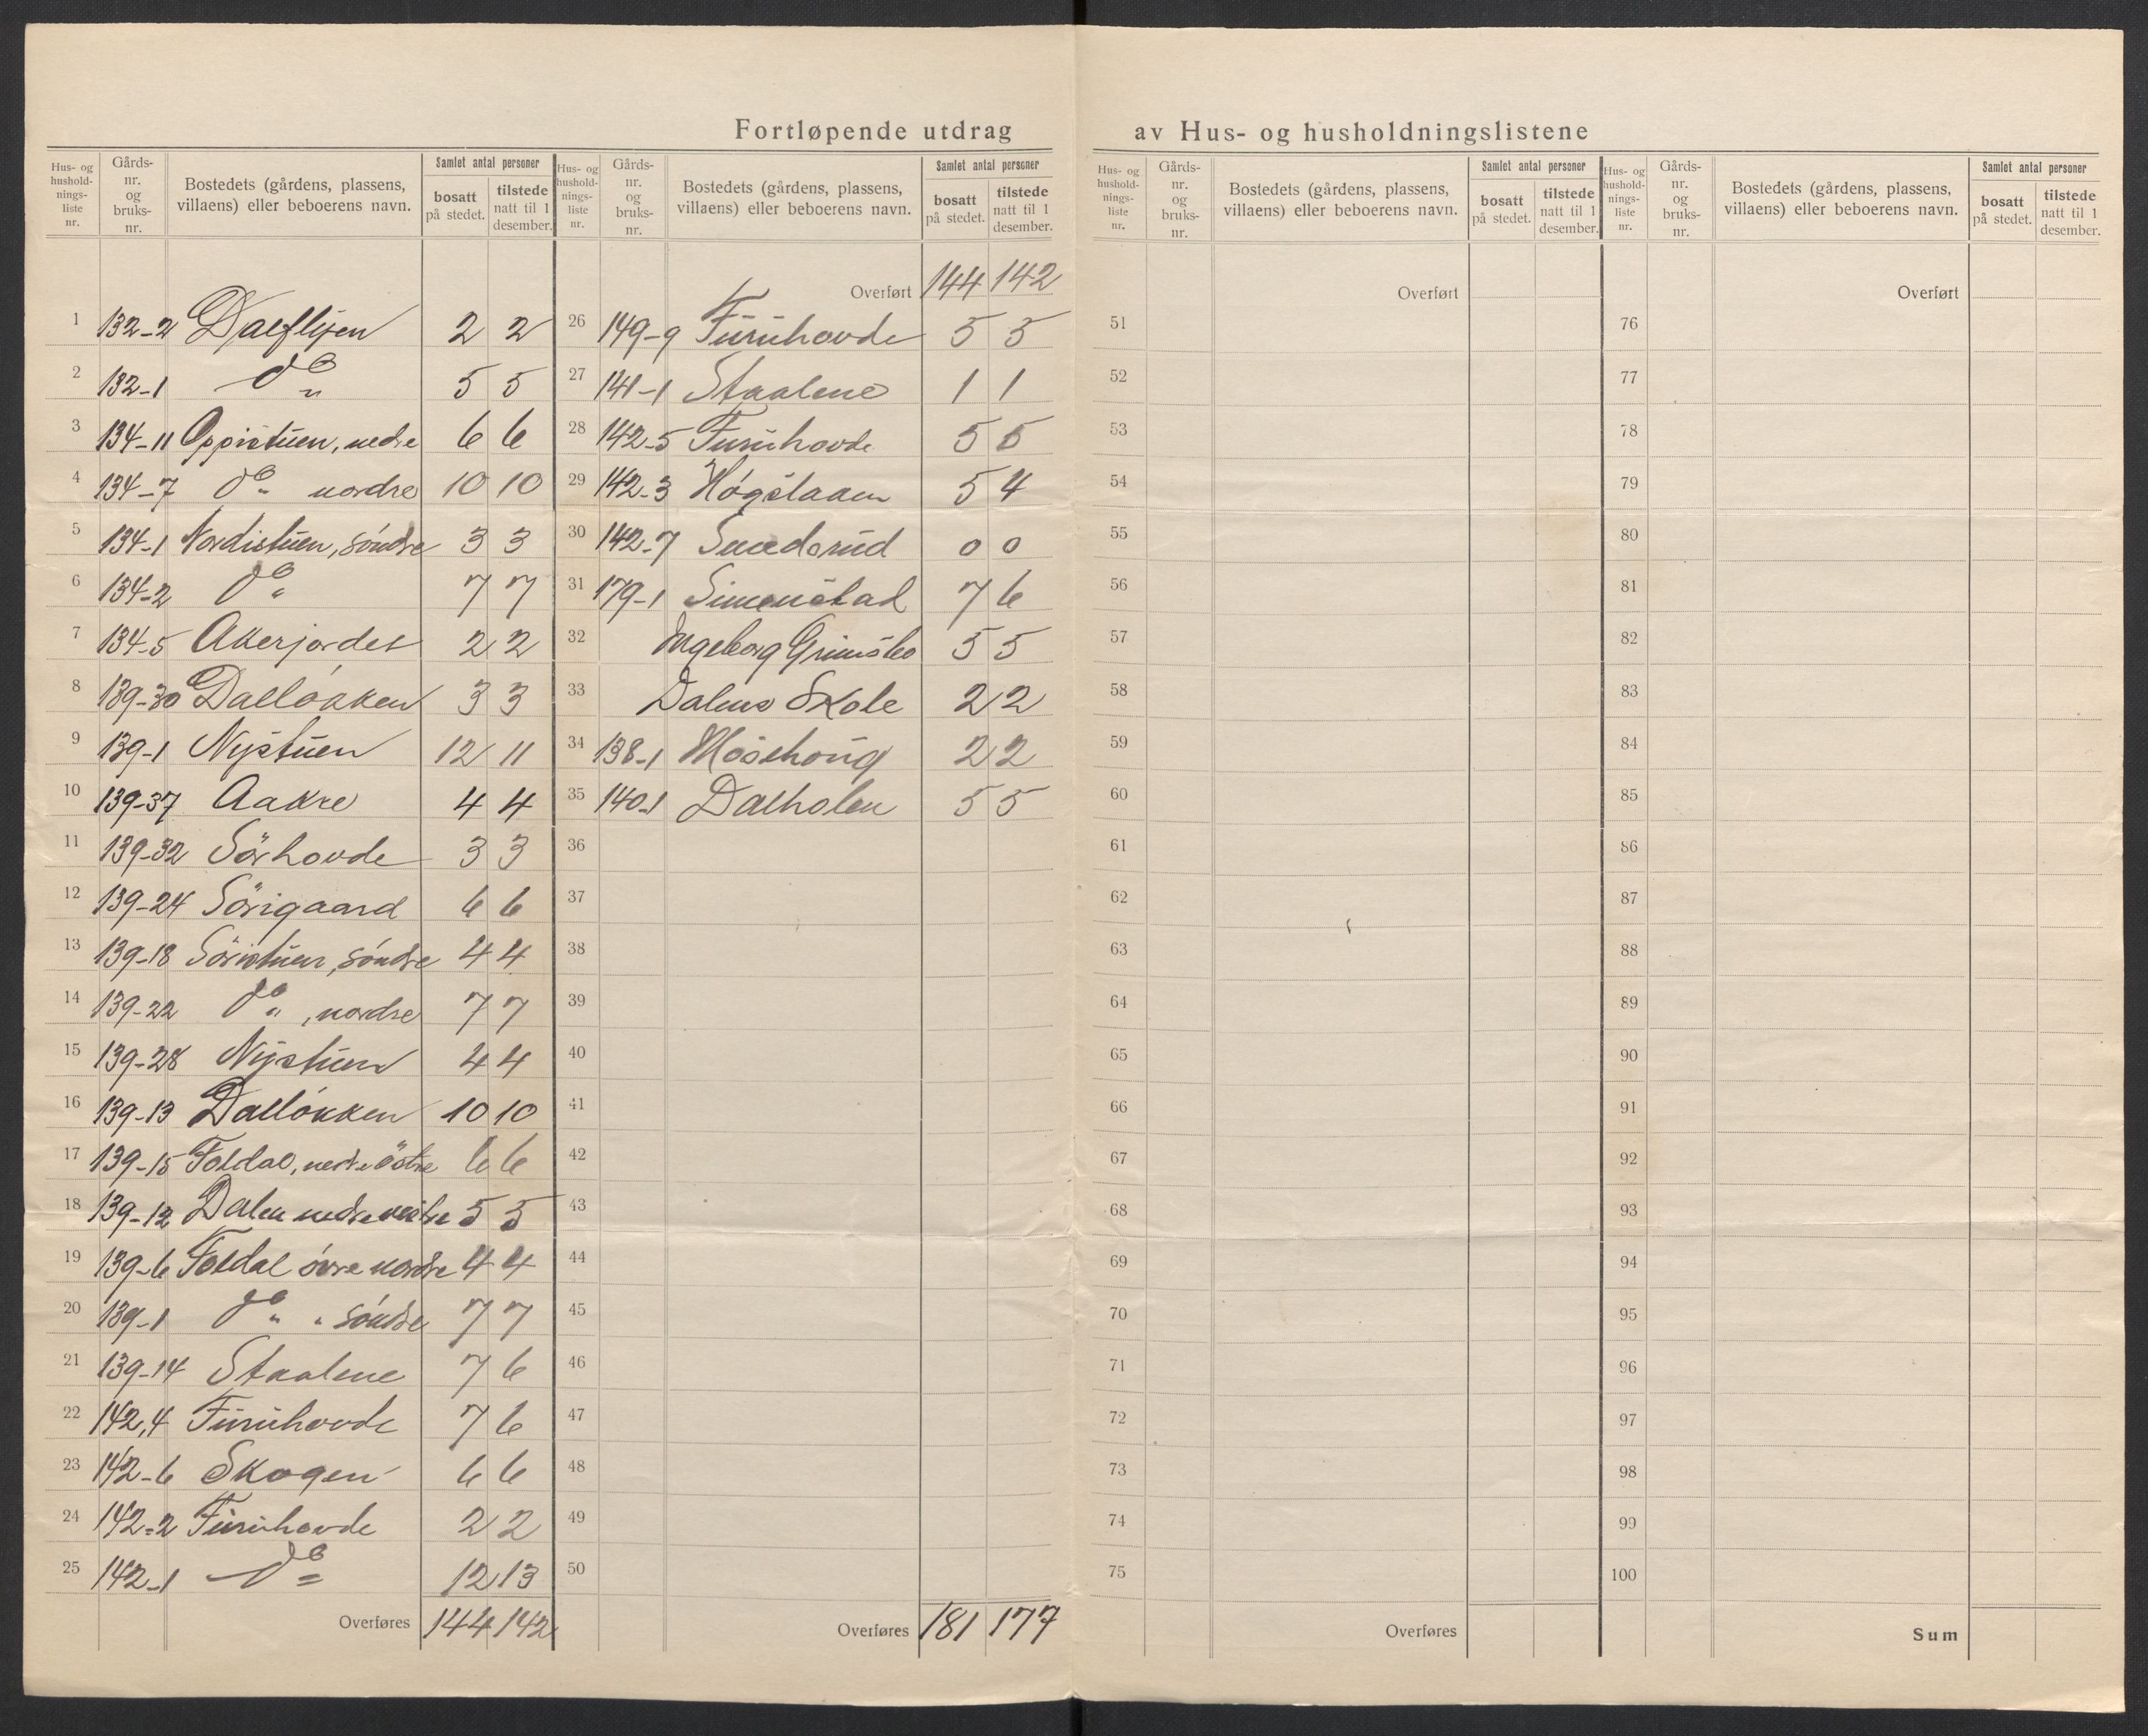 Fortløpende utdrag av Hus- og husholdningslistene
Hus- og husholdningsliste nr. Gårdsnr. og bruksnr. Bostedets (gårdens, plassens, villaens) eller beboerens navn. Samlet antal personer bosatt på stedet. tilstede natt til 1 desember.
1 132-2 Dalflyen 2 2
2 132-1 do " 5 5
3 134-11 Oppistuen, nedre 6 6
4 134-7 do " nordre 10 10
5 134-1 Nordistuen, söndre 3 3
6 134-2 do " 7 7
7 134-5 Akerjordet 2 2
8 139-30 Dalløkken 3 3
9 139-1 Nystuen 12 11
10 139-37 Aakre 4 4
11 139-32 Sörhovde 3 3
12 139-24 Sörigaard 6 6
13 139-18 Söristuen, söndre 4 4
14 139-22 do " , nordre 7 7
15 139-28 Nystuen 4 4
16 139-13 Dalløkken 10 10
17 139-15 Foldal, nedre östre 6 6
18 139-12 Dalen nedre vestre 5 5
19 139-6 Foldal övre nordre 4 4
20 139-1 do " " söndre 7 7
21 139-14 Staalene 7 6
22 142,4 Furuhovde 7 6
23 142-6 Skogen 6 6
24 142-2 Furuhovde 2 2
25 142-1 do " 12 13
Overføres 144 142
Hus- og husholdningsliste nr. Gårdsnr. og bruksnr. Bostedets (gårdens, plassens, villaens) eller beboerens navn. Samlet antal personer bosatt på stedet. tilstede natt til 1 desember.
Overført 144 142
26 149-9 Furuhovde 5 5
27 141-1 Staalene 1 1
28 142-5 Furuhovde 5 5
29 142-3 Høgslaaen 5 4
30 142-7 0 0
31 179-1 Simenstad 7 6
32 Ingeborg Grimsbo 5 5
33 Dalens Skole 2 2
34 138-1 Mosehoug 2 2
35 140-1 Dalholen 5 5
36
37
38
39
40
41
42
43
44
45
46
47
48
49
50
Overføres 181 177
Hus- og husholdningsliste nr. Gårdsnr. og bruksnr. Bostedets (gårdens, plassens, villaens) eller beboerens navn. Samlet antal personer bosatt på stedet. tilstede natt til 1 desember.
Overført
51
52
53
54
55
56
57
58
59
60
61
62
63
64
65
66
67
68
69
70
71
72
73
74
75
Overføres
Hus- og husholdningsliste nr. Gårdsnr. og bruksnr. Bostedets (gårdens, plassens, villaens) eller beboerens navn. Samlet antal personer bosatt på stedet. tilstede natt til 1 desember.
Overført
76
77
78
79
80
81
82
83
84
85
86
87
88
89
90
91
92
93
94
95
96
97
98
99
100
Sum